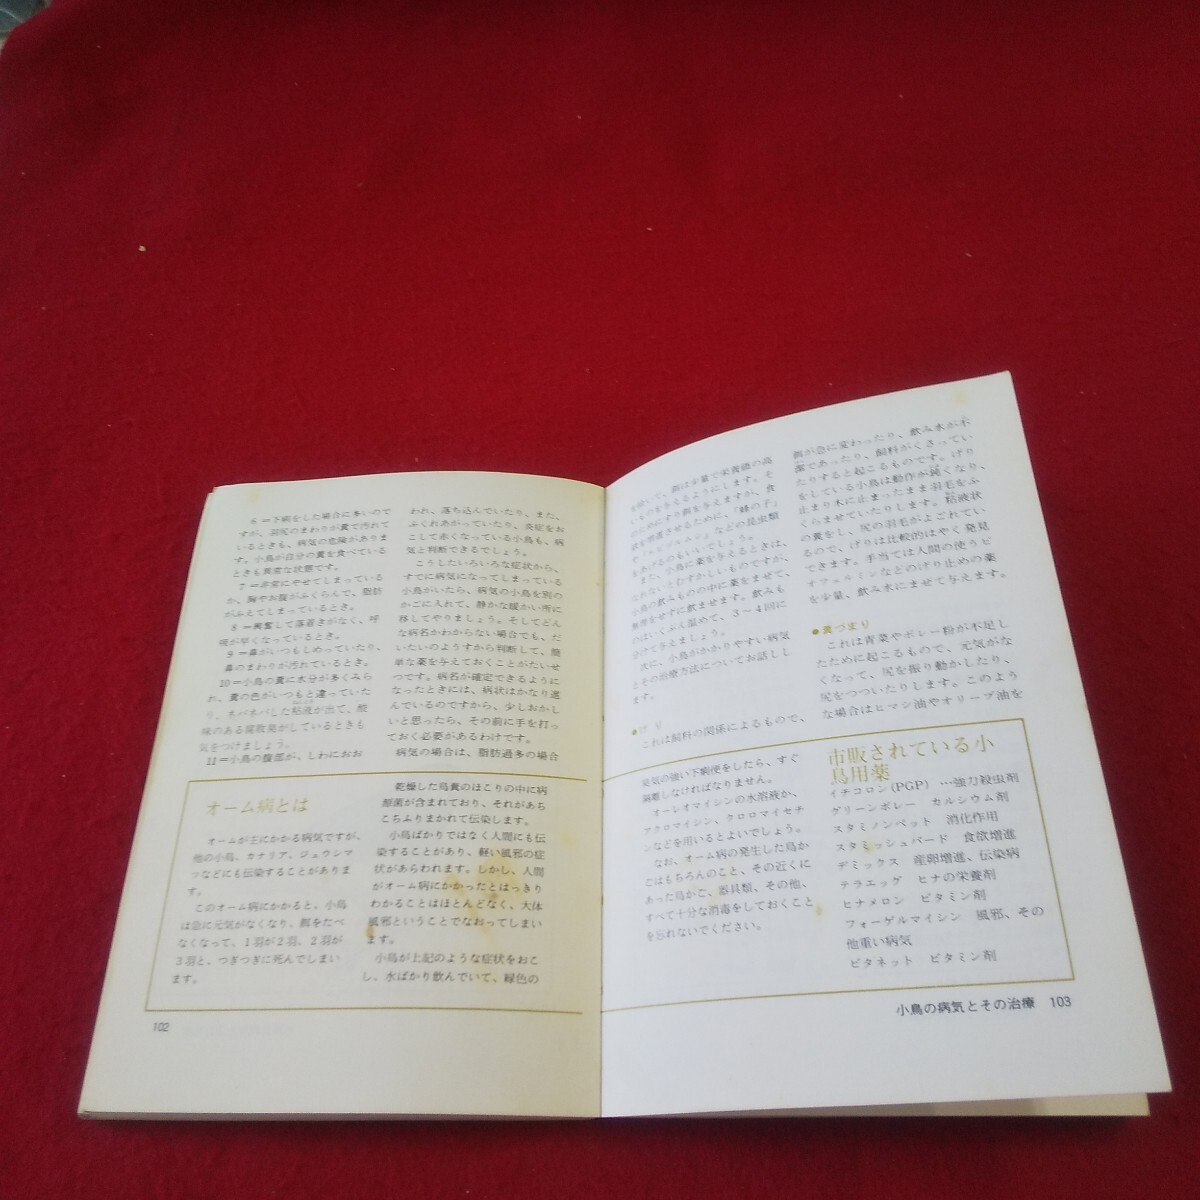 6＝下痢をした場合に多いので
すが、羽尻のまわりが糞で汚れて
いるときも、病気の危険がありま
す。小鳥が自分の糞を食べている
ときも異常な状態です。
7＝非常にやせてしまっている
か、胸やお腹がふくらんで、脂肪
がふえてしまっているとき。
8＝興奮して落着きがなく、呼
吸が早くなっているとき。
9＝鼻がいつもしめっていたり、
鼻のまわりが汚れているとき。
10＝小鳥の糞に水分が多くみら
れ、糞の色がいつもと違っていた
り、ネバネバした粘液が出て、酸
味のある腐敗臭がしているときも
気をつけましょう。
11＝小鳥の腹部が、しわにおお
われ、落ち込んでいたり、また、
ふくれあがっていたり、炎症をお
こして赤くなっている小鳥も、病
気と判断できるでしょう。
こうしたいろいろな症状から、
すでに病気になってしまっている
小鳥がいたら、病気の小鳥を別の
かごに入れて、静かな暖かい所に
移してやりましょう。そしてどん
な病名かわからない場合でも、だ
いたいのようすから判断して、簡
単な薬を与えておくことがたいせ
つです。病名が確定できるように
なったときには、病状はかなり進
んでいるのですから、少しおかし
いと思ったら、その前に手を打っ
ておく必要があるわけです。
病気の場合は、脂肪過多の場合
オーム病とは
オームが主にかかる病気ですが、
他の小鳥、カナリア、ジュウシマ
ツなどにも伝染することがありま
す。
このオーム病にかかると、小鳥
は急に元気がなくなり、餌をたべ
なくなって、1羽が2羽、2羽が
3羽と、つぎつぎに死んでしまい
ます。
乾燥した鳥糞のほこりの中に病
原菌が含まれており、それがあち
こちふりまかれて伝染します。
小鳥ばかりではなく人間にも伝
染することがあり、軽い風邪の症
状があらわれます。しかし、人間
がオーム病にかかったとはっきり
わかることはほとんどなく、大体
風邪ということでなおってしまい
ます。
小鳥が上記のような症状をおこ
し、水ばかり飲んでいて、緑色の
102
を除いて、餌は少量で栄養価の高
いものを与えるようにします。そ
のためにすり餌を与えますが、食
欲を増進させるために、「蜂の子」
や などの昆虫類
をあげるのもいいでしょう。
また、小鳥に薬を与えるときは、
なれないとむずかしいものですが、
小鳥の飲みものの中に薬をまぜて、
無理をせずに飲ませます。飲みも
のはいくぶん温めて、3〜4回に
分けて与えましょう。
次に、小鳥がかかりやすい病気
とその治療方法についてお話しし
ます。
●げり
これは飼料の関係によるもので、
餌が急に変わったり、飲み水が不
潔であったり、飼料がくさってい
たりすると起こるものです。げり
をしている小鳥は動作が鈍くなり、
止まり木に止まったまま羽毛をふ
くらませていたりします。粘液状
の糞をし、尻の羽毛がよごれてい
るので、げりは比較的はやく発見
できます。手当ては人間の使うビ
オフェルミンなどのげり止めの薬
を少量、飲み水にまぜて与えます。
●糞づまり
これは青菜やボレー粉が不足し
たために起こるもので、元気がな
くなって、尻を振り動かしたり、
尻をつついたりします。このよう
な場合はヒマシ油やオリーブ油を
臭気の強い下痢便をしたら、すぐ
隔離しなければなりません。
オーレオマイシンの水溶液か、
アクロマイシン、クロロマイセチ
ンなどを用いるとよいでしょう。
なお、オーム病の発生した鳥か
ごはもちろんのこと、その近くに
あった鳥かご、器具類、その他、
すべて十分な消毒をしておくこと
を忘れないでください。
市販されている小
鳥用薬
イチコロン(PGP) …強力殺虫剤
グリーンボレー カルシウム剤
スタミノンペット 消化作用
スタミッシュバード 食欲増進
デミックス 産卵増進、伝染病
テラエッグ ヒナの栄養剤
ヒナメロン ビタミン剤
フォーゲルマイシン 風邪、その
他重い病気
ビタネット ビタミン剤
小鳥の病気とその治療 103